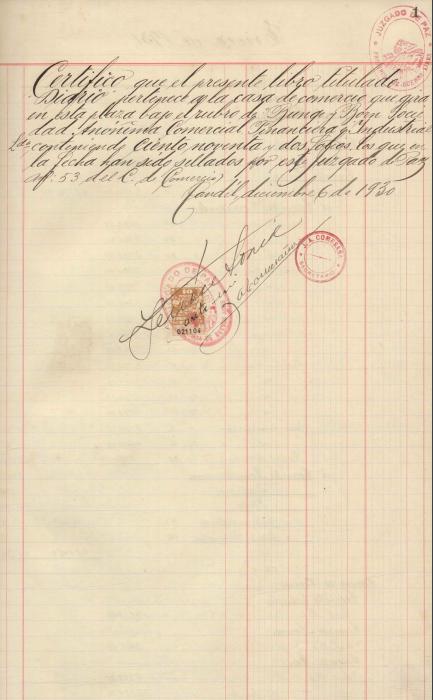 1
JUZGADO DE PAZ
Certifico que el presente libro titulado
Diario pertenece a la casa de comercio que gira
en esta plaza bajo el rubro de Bunge y Born Soci
dad Anonima Comercial Financiera y Industrial
conteniendo ciento noventa y dos folios, los que en
la fecha han sido sellados por este Juzgado de Paz
art. 53 del C. de Comercio
Tandil, diciembre 6 de 1930
SECRETARIO
JUZGADO DE PAZ
021104